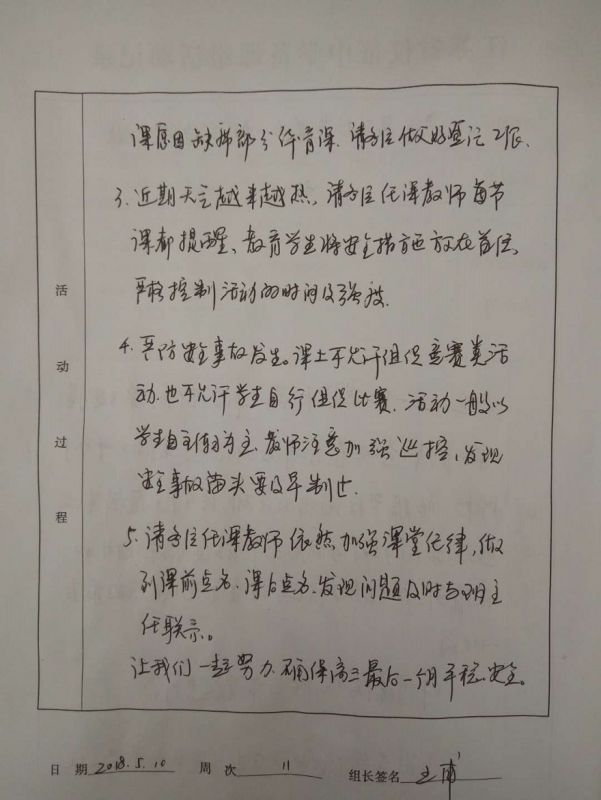 课原因缺席部分体育课、请各位做好登记工作、
3、近期天气越来越热、请各位任课教师每节
课都提醒、教育学生将安全措施放在首位、
严格控制活动的时间及强度、
4、严防安全事故发生。课上不允许组织竞赛类活
动、也不允许学生自行组织比赛、活动一般以
学生自主体育为主、教师注意加强巡控、发现
安全事故苗头要及早制止.
5、请各位任课教师依然加强课堂纪律,做
到课前点名、课后点名、发现问题及时与班主
任联系。
让我们一起努力、确保高三最后一个月平稳、安全。
活动过程
日 期 2018.5.10 周 次 11 组长签名 王